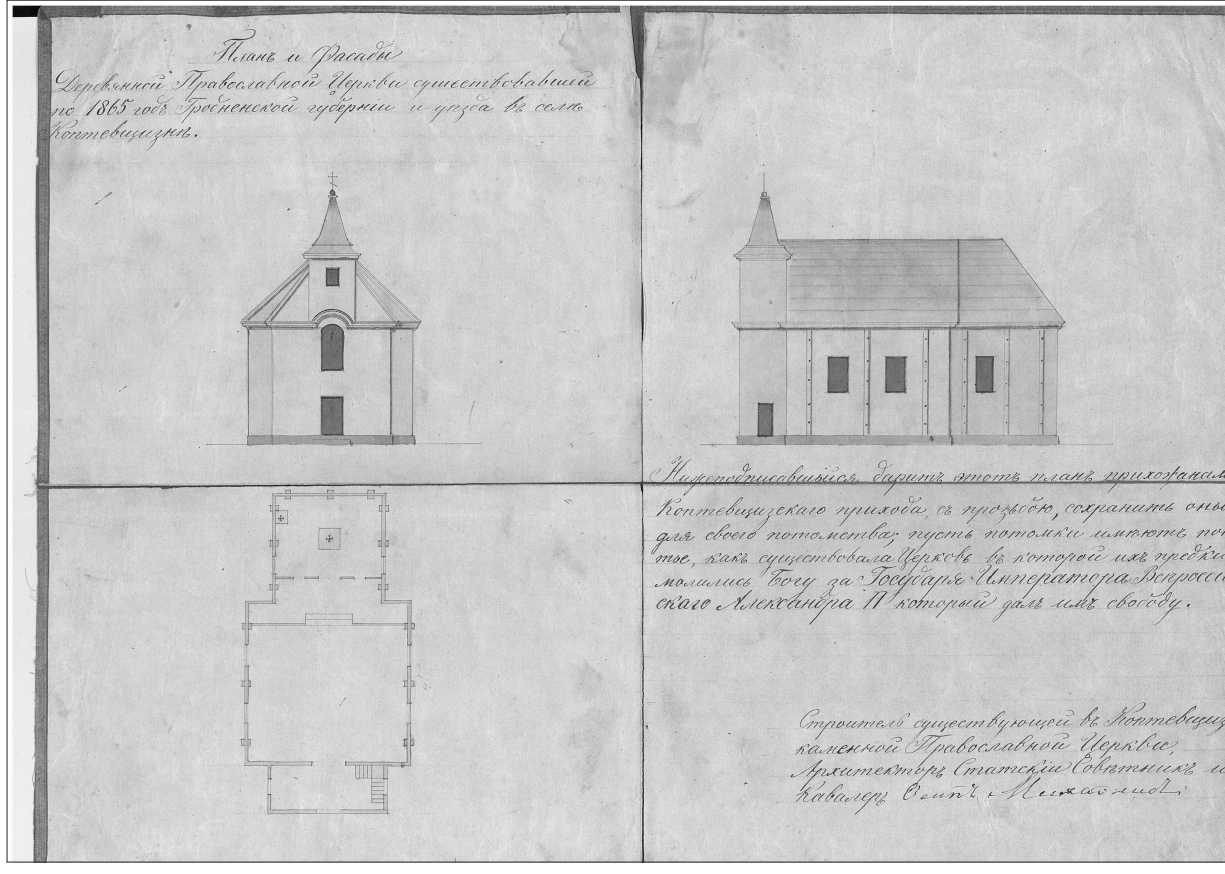 Планъ и Фасады
Деревянной Православной Церкви существовавшей
по 1865 годъ Гродненской губерніи и уѣзда въ селѣ
Коптевщизнѣ.
Нижеподписавшийся даритъ этотъ планъ прихожанам
Коптевщизскаго прихода, съ прозьбою, сохранить оны
для своего потомства; пусть потомки имѣютъ пон
тіе, какъ существовала Церковь въ которой ихъ предки
молились Богу за Государя Императора Всеросси
скаго Александра II который далъ имъ свободу.
Строитель существующей въ Коптевщиз
каменной Православной Церкви,
Архитекторъ Статскій Совѣтникъ и
Кавалеръ Осипъ